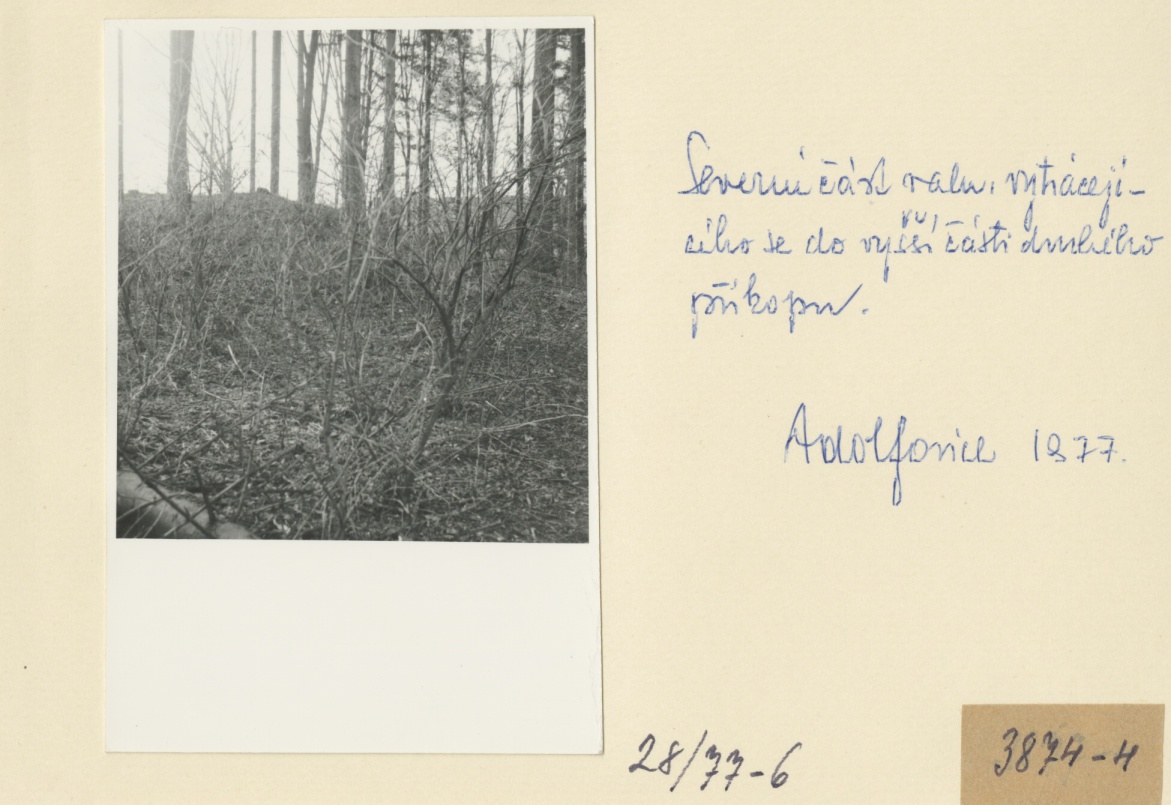 Severní část valu, vytrácejí-
cího se do vyšší části druhého
příkopu.
Adolfovice 1977.
28/77-6
3874-4